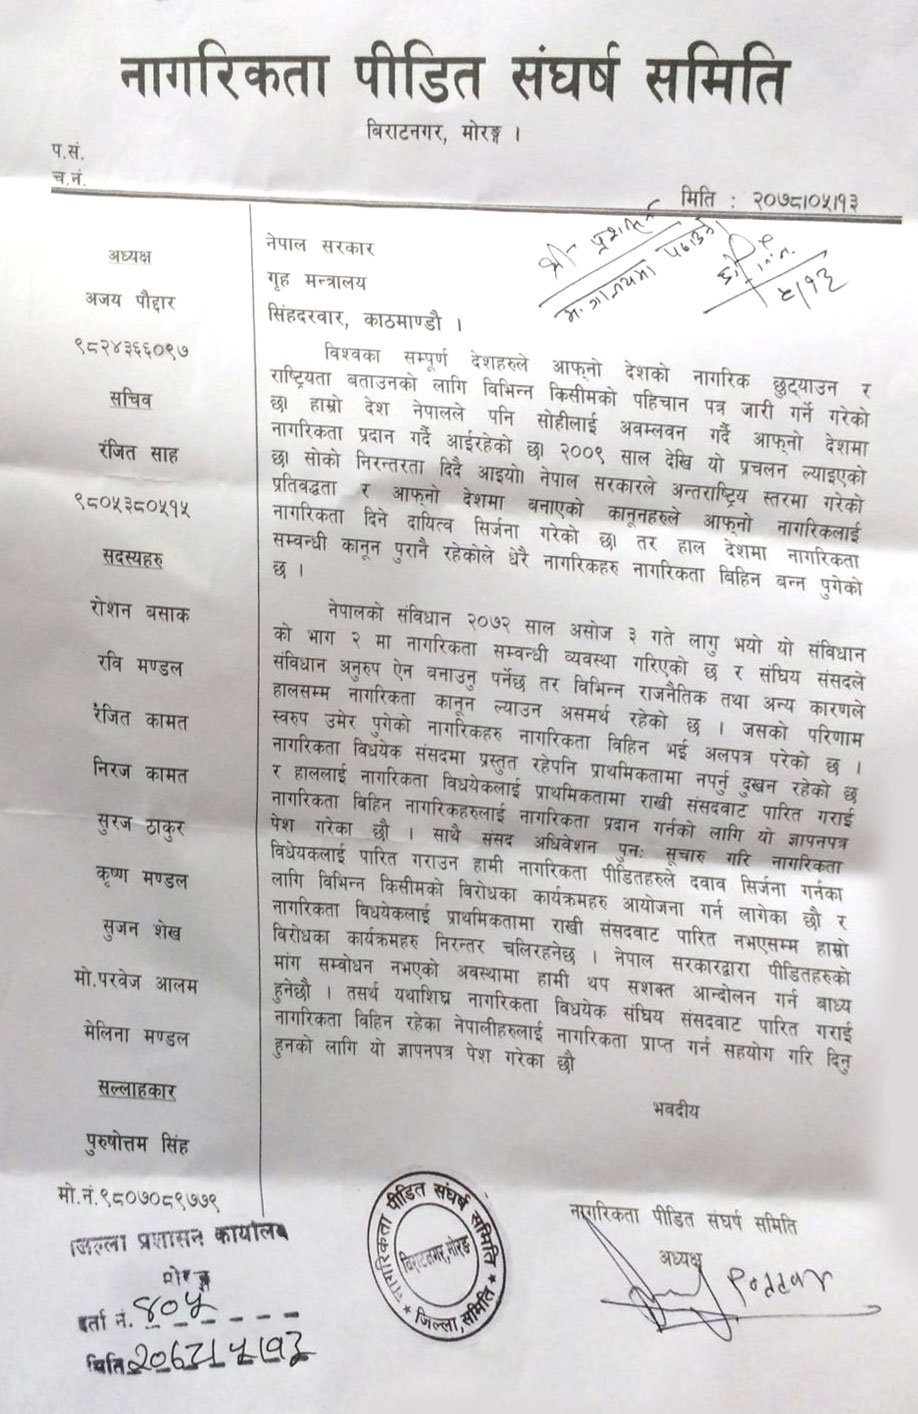 नागरिकता पीडित संघर्ष समिति
बिराटनगर, मोरङ्ग ।
प.सं.
च.नं.
मिति : २०७८।०५।१३
अध्यक्ष
अजय पौद्दार
९८२४३६६०९७
सचिव
रंजित साह
९८०५३८०५१५
सदस्यहरु
रोशन बसाक
रवि मण्डल
रंजित कामत
निरज कामत
सुरज ठाकुर
कृष्ण मण्डल
सुजन शेख
मो.परवेज आलम
मेलिना मण्डल
सल्लाहकार
पुरुषोत्तम सिंह
मो.नं.९८०७०८९७७९
नेपाल सरकार
गृह मन्त्रालय
सिंहदरवार, काठमाण्डौ ।
विश्वका सम्पूर्ण देशहरुले आफ्नो देशको नागरिक छुट्याउन र
राष्ट्रियता बताउनको लागि विभिन्न किसीमको पहिचान पत्र जारी गर्ने गरेको
छ। हाम्रो देश नेपालले पनि सोहीलाई अवम्लवन गर्दै आफ्नो देशमा
नागरिकता प्रदान गर्दै आईरहेको छ। २००९ साल देखि यो प्रचलन ल्याइएको
छ। सोको निरन्तरता दिदै आइयो। नेपाल सरकारले अन्तराष्ट्रिय स्तरमा गरेको
प्रतिवद्धता र आफ्नो देशमा बनाएको कानूनहरुले आफ्नो नागरिकलाई
नागरिकता दिने दायित्व सिर्जना गरेको छ। तर हाल देशमा नागरिकता
सम्वन्धी कानून पुरानै रहेकोले धेरै नागरिकहरु नागरिकता बिहिन बन्न पुगेको
छ ।
नेपालको संविधान २०७२ साल असोज ३ गते लागु भयो यो संविधान
को भाग २ मा नागरिकता सम्वन्धी व्यवस्था गरिएको छ र संघिय संसदले
संविधान अनुरुप ऐन बनाउनु पर्नेछ तर विभिन्न राजनैतिक तथा अन्य कारणले
हालसम्म नागरिकता कानून ल्याउन असमर्थ रहेको छ । जसको परिणाम
स्वरुप उमेर पुगेको नागरिकहरु नागरिकता विहिन भई अलपत्र परेको छ ।
नागरिकता विधयेक संसदमा प्रस्तुत रहेपनि प्राथमिकतामा नपर्नु दुखन रहेको छ
र हाललाई नागरिकता विधयेकलाई प्राथमिकतामा राखी संसदवाट पारित गराई
नागरिकता विहिन नागरिकहरुलाई नागरिकता प्रदान गर्नको लागि यो ज्ञापनपत्र
पेश गरेका छौ । साथै संसद अधिवेशन पुनः सूचारु गरि नागरिकता
विधेयकलाई पारित गराउन हामी नागरिकता पीडितहरुले दवाव सिर्जना गर्नका
लागि विभिन्न किसीमको विरोधका कार्यक्रमहरु आयोजना गर्न लागेका छौ र
नागरिकता विधयेकलाई प्राथमिकतामा राखी संसदवाट पारित नभएसम्म हाम्रो
विरोधका कार्यक्रमहरु निरन्तर चलिरहनेछ । नेपाल सरकारद्वारा पीडितहरुको
मांग सम्वोधन नभएको अवस्थामा हामी थप सशक्त आन्दोलन गर्न बाध्य
हुनेछौ । तसर्थ यथाशिघ्र नागरिकता विधयेक संघिय संसदवाट पारित गराई
नागरिकता विहिन रहेका नेपालीहरुलाई नागरिकता प्राप्त गर्न सहयोग गरि दिनु
हुनको लागि यो ज्ञापनपत्र पेश गरेका छौ
भवदीय
नागरिकता पीडित संघर्ष समिति
अध्यक्ष
Poddar
नागरिकता पीडित संघर्ष समिति
बिराटनगर, मोरङ
जिल्ला समिति
जिल्ला प्रशासन कार्यालय
मोरङ्ग
दर्ता नं. ४०५
मिति २०७८।५।१३